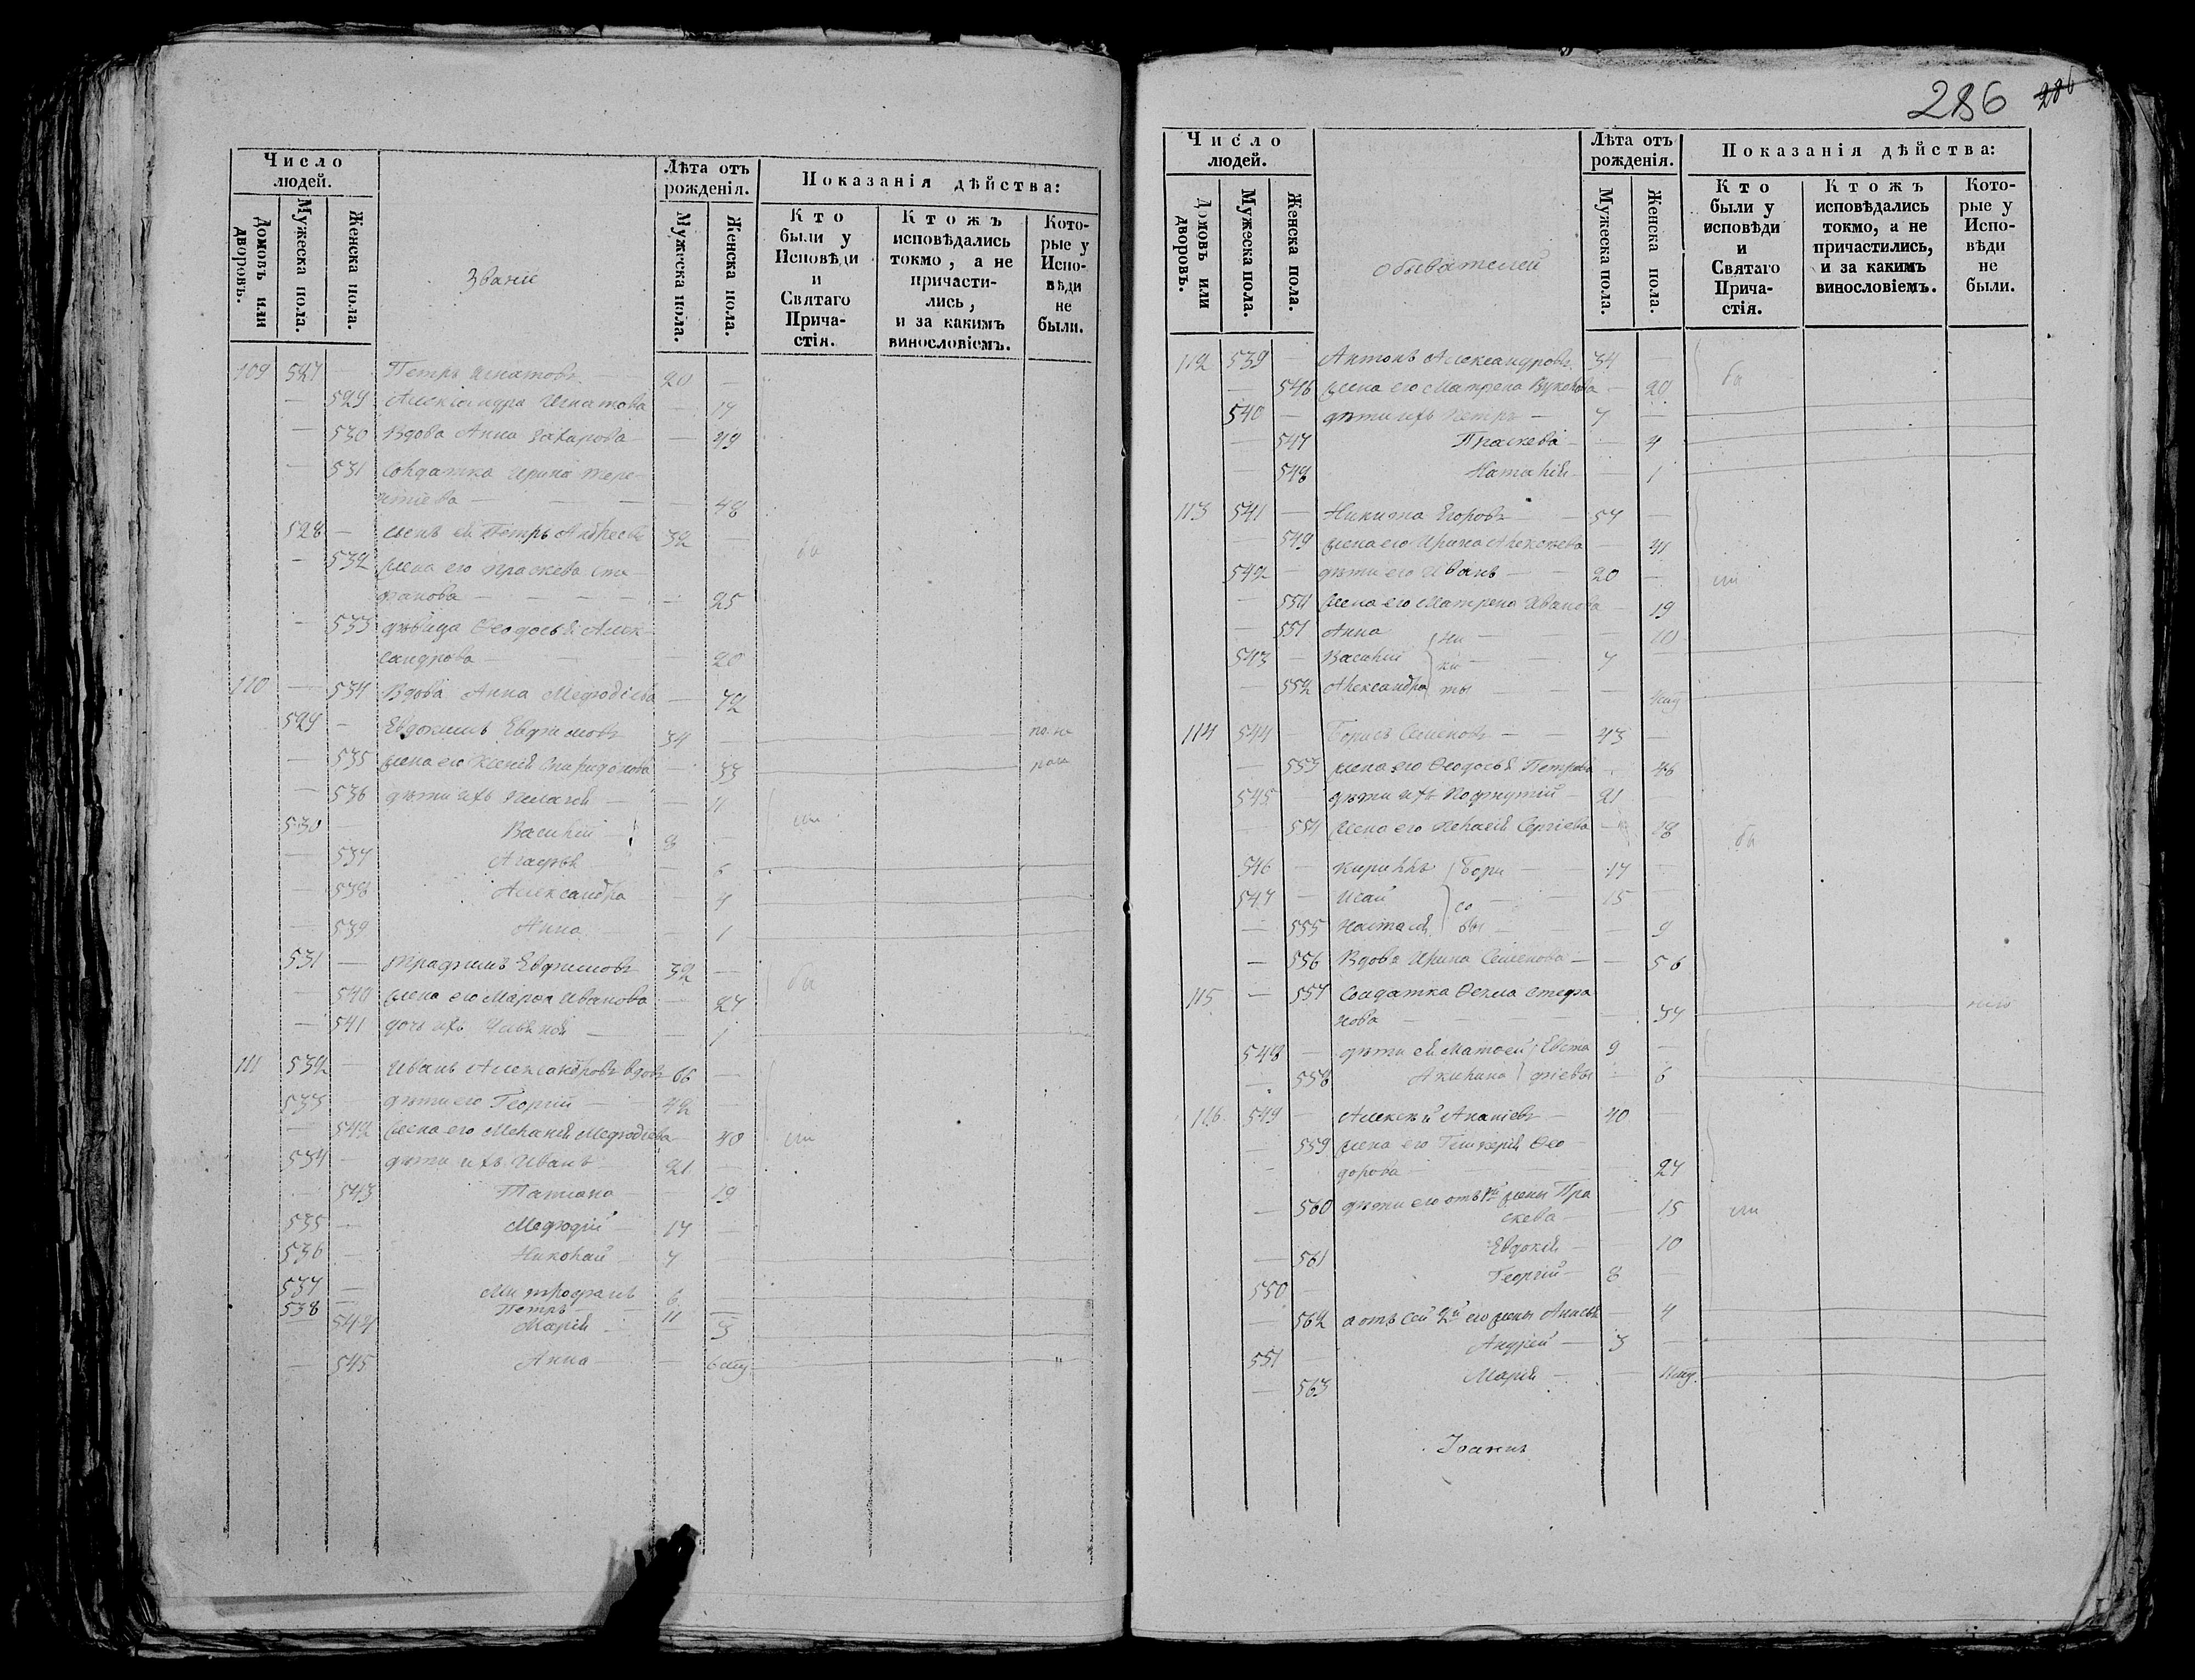 Число людей.
Домовъ или дворовъ.
Мужеска пола.
Женска пола.
Званiе
Лѣта отъ рожденiя.
Мужеска пола.
Женска пола.
Показанiя дѣйства:
Кто были у Исповѣди и Святаго Прича-стiя.
Ктожъ исповѣдались токмо, а не причасти-лись, и за какимъ винословiемъ.
Кото-рые у Испо-вѣди не были.
109 527 — Петръ Игнатовъ — 20 —
— 529 Александра Игнатова — 17
— 530 Вдова Анна Захарова — 49
— 531 Солдатка Ирина Тере-
нтiева — — — 48
528 — сынъ ея Петръ Андреевъ 32 —
— 532 жена его Праскева Сте-
фанова — — — 25
— 533 дѣвица Ѳеодосья Алек-
сандрова — — 20
110 — 534 Вдова Анна Мефодiева — 72
529 — Евдокимъ Евфимовъ 34 —
— 535 жена его Ксенiя Спиридонова — 33
— 536 дѣти ихъ Пелагея — — 11
530 — Василiй — 8 —
— 537 Агафья — 5
— 538 Александра — 4
— 539 Анна — 1
531 — Трафимъ Евфимовъ 32 —
— 540 жена его Марѳа Иванова — 27
— 541 дочь ихъ — 1
111 532 — Иванъ Александровъ вдовъ 66 —
533 — дѣти его Георгiй — 42 —
— 542 жена его Меланiя Мефодiева — 40
534 — дѣти ихъ Иванъ 21 —
— 543 Татiана — 19
535 — Мефодiй 17 —
536 — Николай 7 —
537 — Митрофанъ 6 —
538 — Петръ — 11 —
544 Марiя 3
— 545 Анна — 6 мц.
286 286
Число людей.
Домовъ или дворовъ.
Мужеска пола.
Женска пола.
обывателей
Лѣта отъ рожденiя.
Мужеска пола.
Женска пола.
Показанiя дѣйства:
Кто были у исповѣди и Святаго Прича-стiя.
Ктожъ исповѣдались токмо, а не причастились, и за какимъ винословiемъ.
Кото-рые у Испо-вѣди не были.
112 539 — Антонъ Александровъ 34
— 546 жена его Матрена — 20
540 — дѣти ихъ Петръ — 7 —
— 547 Праскева — 4
548 Наталiя — 1
113 541 — Никита Егоровъ — 57 —
— 549 жена его Ирина Алексѣева — 41
542 — дѣти его Иванъ — 20 —
— 550 жена его Матрена Иванова — 19
— 551 Анна Ни — 10
543 — Василiй ки — 7 —
— 552 Александра ты —
114 544 — Борисъ Семеновъ — 43 —
— 553 жена его Ѳеодосья Петрова — 46
545 — дѣти ихъ Пафнутiй — 21 —
— 554 жена его Пелагея Сергiева — 18
546 — Кириллъ Бори — 17 —
547 — Исай со — 15 —
— 555 Настасiя вы — 9
— 556 Вдова Ирина Семенова — — 56
115 — 557 Солдатка Ѳекла Стефа
нова — 37
548 — дѣти ея Матѳей Евста 9 —
— 558 Акилина фiевы — 6
116 549 — Алексѣй Ананiевъ — 40 —
— 559 жена его Гликерiя Ѳео
дорова — — 27
— 560 дѣти его отъ 1й жены Пра
скева — 15
— 561 Евдокiя — 10
550 — Георгiй — 8 —
— 562 а отъ сей 2й его жены Анисья — 4
551 — Андрей — 3 —
— 563 Марiя — 11 мц.
Iоаннъ